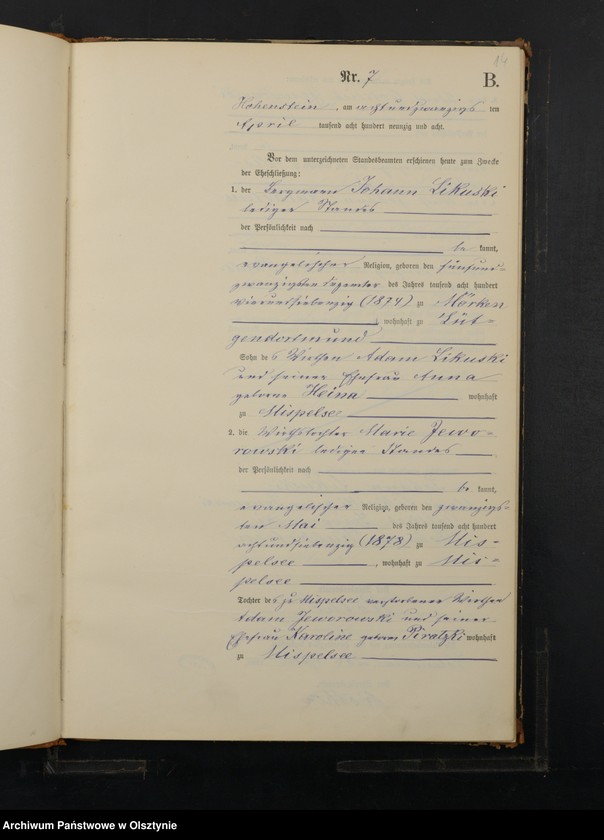 14
Nr. 7
B.
Hohenstein, am achtundzwanzigsten
April tausend acht hundert neunzig und acht.
Vor dem unterzeichneten Standesbeamten erschienen heute zum Zwecke
der Eheschließung:
1. der Bergmann Johann Likuski
ledigen Standes
der Persönlichkeit nach
be kannt,
evangelischer Religion, geboren den fünfund-
zwanzigsten Dezember des Jahres tausend acht hundert
vierundsiebenzig (1874) zu Mörken
, wohnhaft zu Lüt-
gendortmund
Sohn des Wirthen Adam Likuski
und seiner Ehefrau Anna
geborene Heina wohnhaft
zu Mispelsee
2. die Wirthstochter Marie Jewo-
rowski ledigen Standes
der Persönlichkeit nach
be kannt,
evangelischer Religion, geboren den zwanzigs-
ten Mai des Jahres tausend acht hundert
achtundsiebenzig (1878) zu Mis-
pelsee, wohnhaft zu Mis-
pelsee
Tochter des zu Mispelsee verstorbenen Wirthen
Adam Jeworowski und seiner
Ehefrau Karoline geboren Piratzki wohnhaft
zu Mispelsee
Archiwum Państwowe w Olsztynie